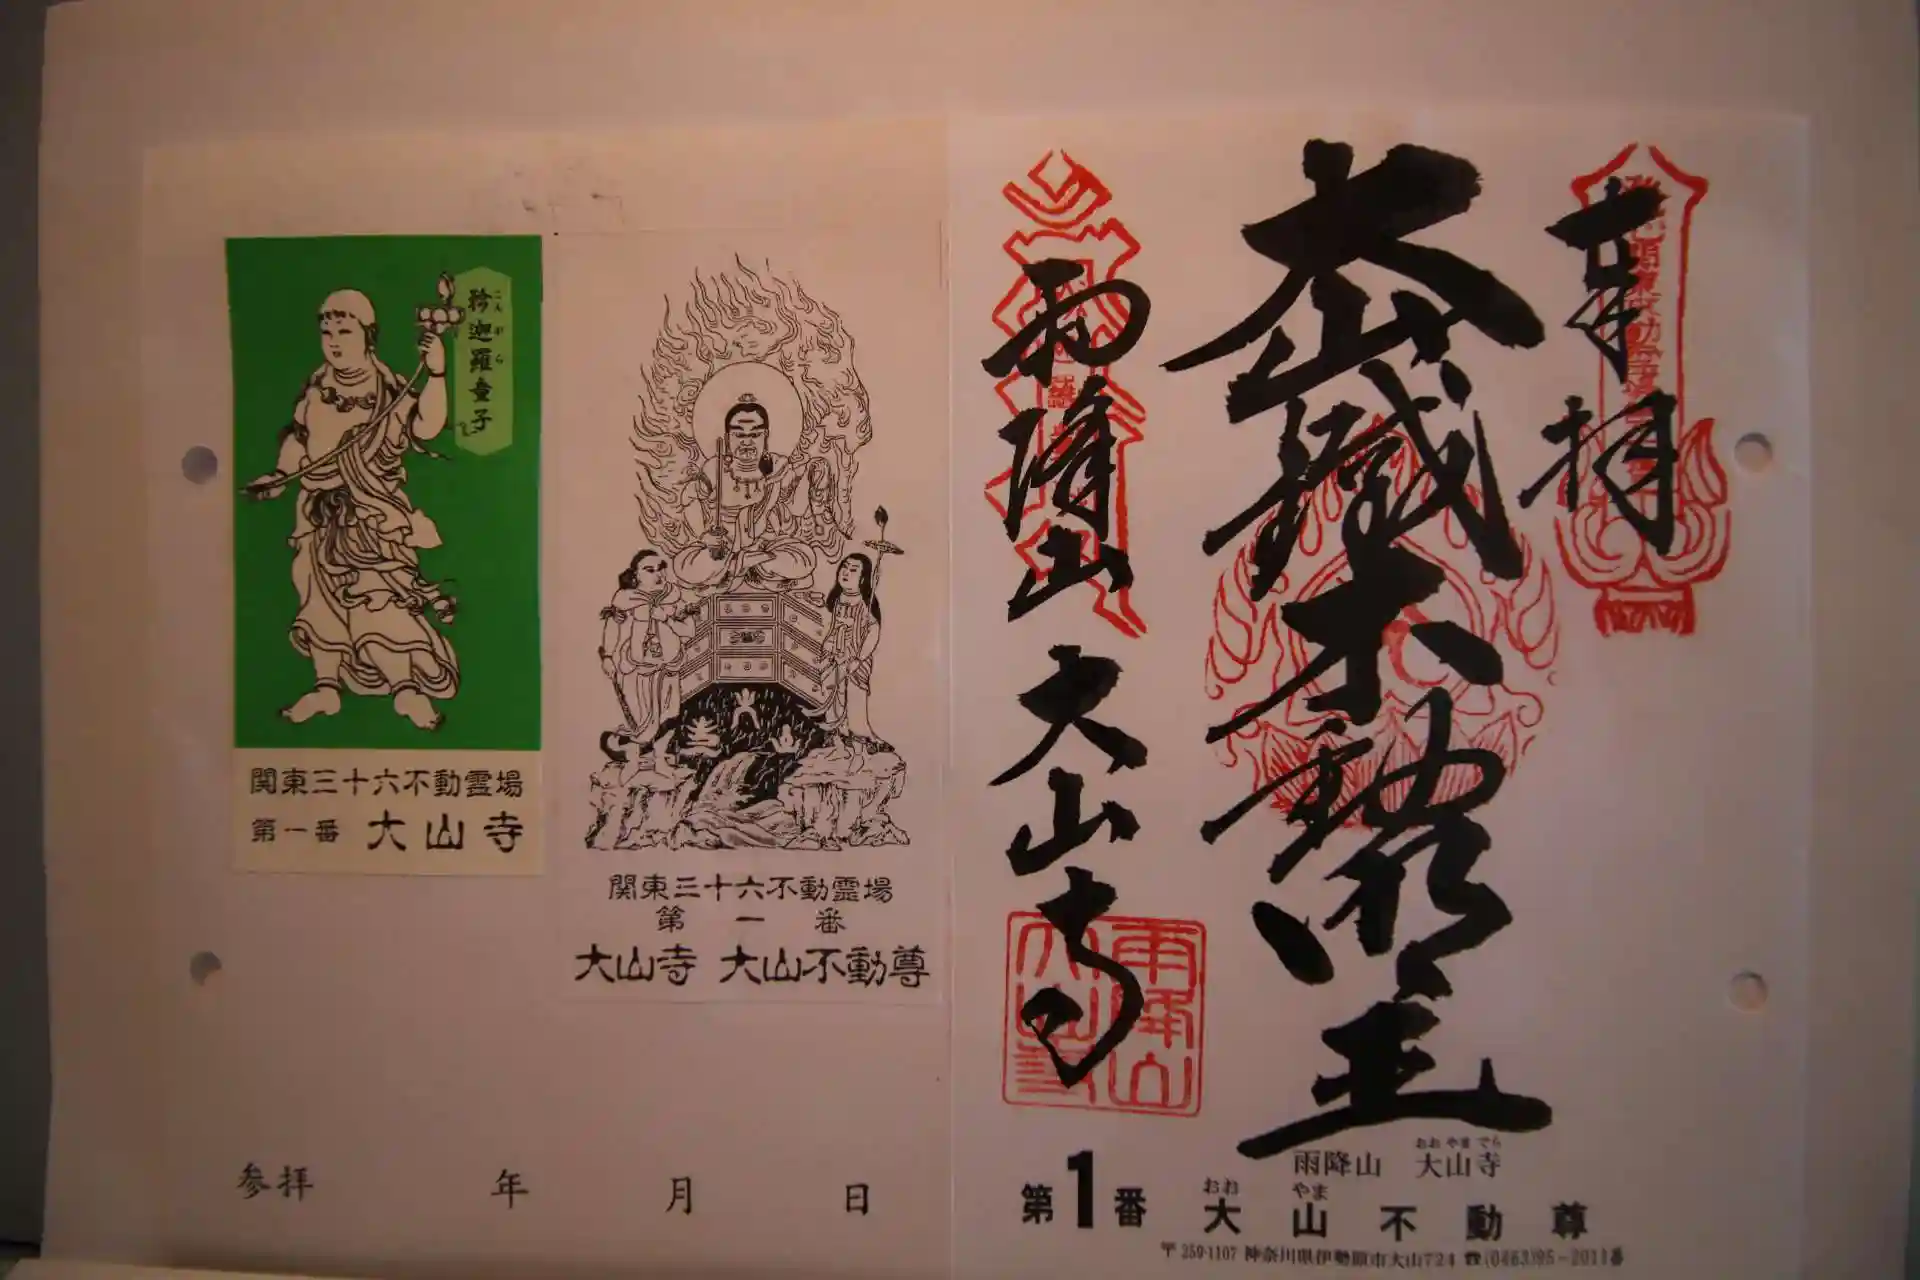 矜迦羅童子
こんがら
関東三十六不動霊場
第一番 大山寺
関東三十六不動霊場
第一番
大山寺 大山不動尊
参拝 年 月 日
奉拝
大山鐵不動明王
雨降山 大山寺
雨降山
大山寺
おおやまでら
雨降山 大山寺
おお やま
第1番 大山不動尊
〒259-1107 神奈川県伊勢原市大山724 ☎(0463)95-2011番